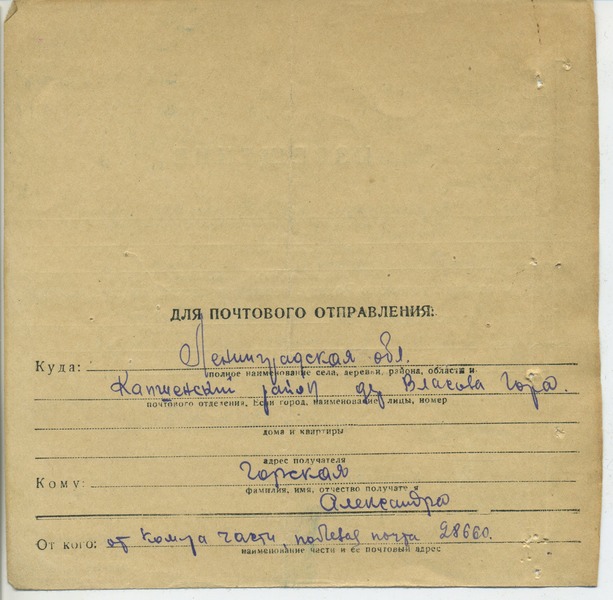 ДЛЯ ПОЧТОВОГО ОТПРАВЛЕНИЯ:
Куда: Ленинградская обл.
полное наименование села, деревни, района, области и
Капшенский район дер Власова Гора.
почтового отделения. Если город, наименование улицы, номер
дома и квартиры
адрес получателя
Кому: Горская
фамилия, имя, отчество получателя
Александра
От кого: от ком-ра части, полевая почта 28660.
наименование части и ее почтовый адрес